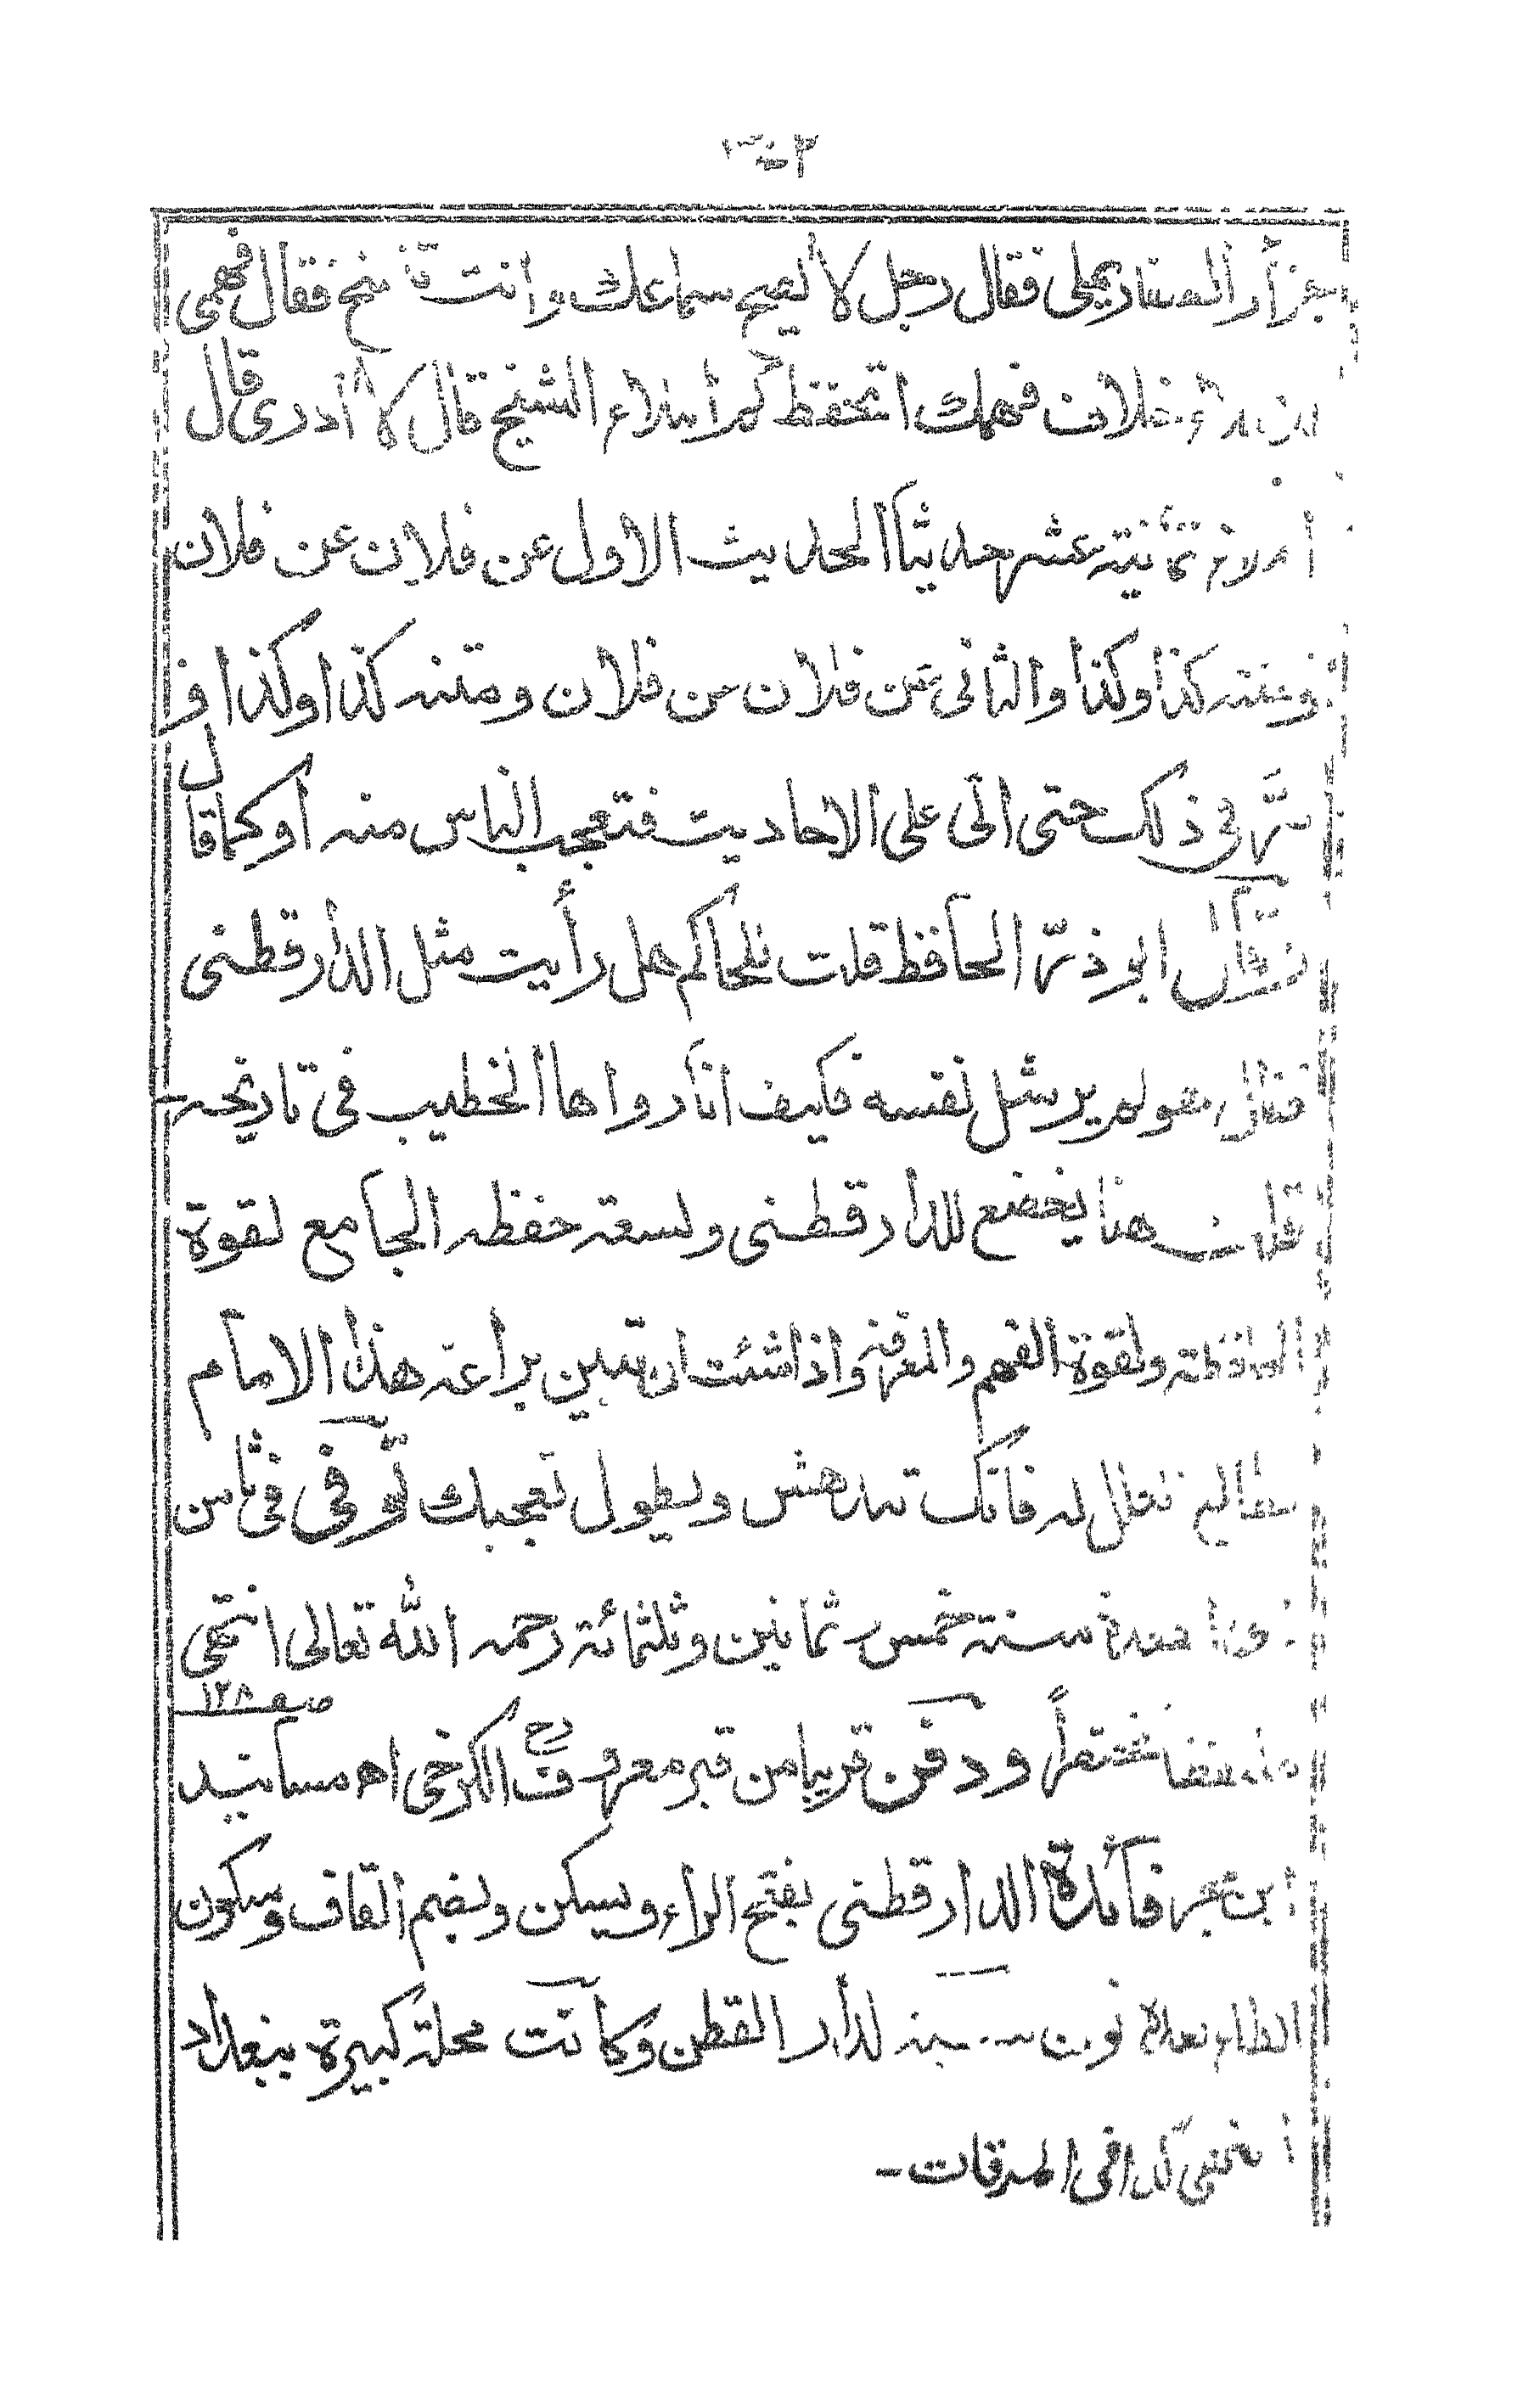 جزأ والصفار يملى فقال رجل لا يصح سماعك وانت تنسخ فقال فهمى
للاملاء خلاف فهمك اتحفظ كم املاء الشيخ قال لا أدرى قال
أملا ثمانية عشر حديثا الحديث الاول عن فلان عن فلان
ومتنه كذا وكذا والثانى عن فلان عن فلان ومتنه كذا وكذا ومر
فى ذلك حتى اتى على الاحاديث فتعجب الناس منه أو كما قال
وقال ابو ذر الحافظ قلت للحاكم هل رأيت مثل الدارقطنى
فقال هو لم ير مثل نفسه فكيف انا رواها الخطيب فى تاريخه
قلت هنا يخضع للدارقطنى ولسعة حفظه الجامع لقوة
الحافظة ولقوة الفهم والمعرفة واذا شئت ان تبين براعة هذا الامام
فطالع العلل له فانك تندهش ويطول تعجبك توفى فى ثامن
ذى القعدة سنة خمس وثمانين وثلثمائة رحمه الله تعالى انتهى
صفـ ١٢٨
ملتقطا مختصراً ودفن قريبا من قبر معروف الكرخى رح اه مسانيد
ابن حجر فائدة الدارقطنى بفتح الراء ويسكن وبضم القاف وسكون
الطاء بعده نون نسبة لدار القطن وكانت محلة كبيرة ببغداد
كذا فى المرقات -